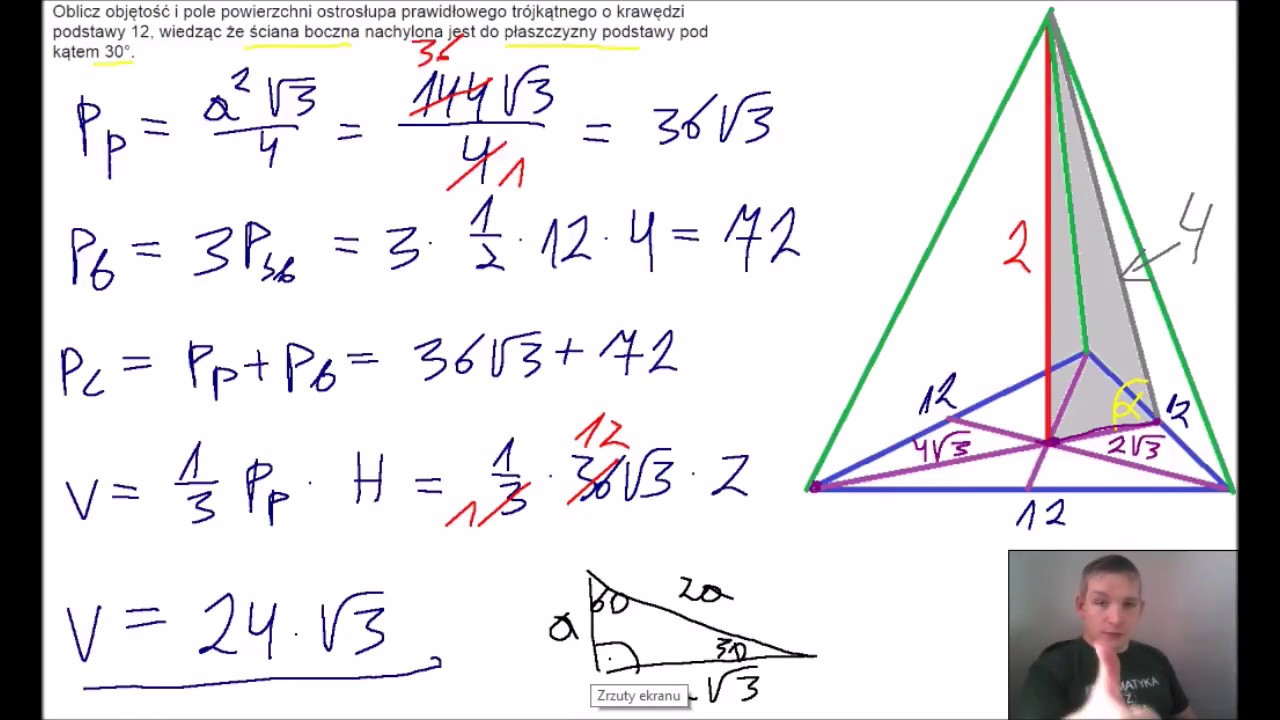 Oblicz objętość i pole powierzchni ostrosłupa prawidłowego trójkątnego o krawędzi
podstawy 12, wiedząc że ściana boczna nachylona jest do płaszczyzny podstawy pod
kątem 30°.
36
Pp = a²√3/4 = 144√3/4 = 36√3
1
Pb = 3Psb = 3 · 1/2 · 12 · 4 = 72
Pc = Pp + Pb = 36√3 + 72
12
V = 1/3 Pp · H = 1/3 · 36√3 · 2
1
V = 24 · √3
2
4
α
12
12
4√3
2√3
12
60
2a
a
30
√3
Zrzuty ekranu
MATYKA